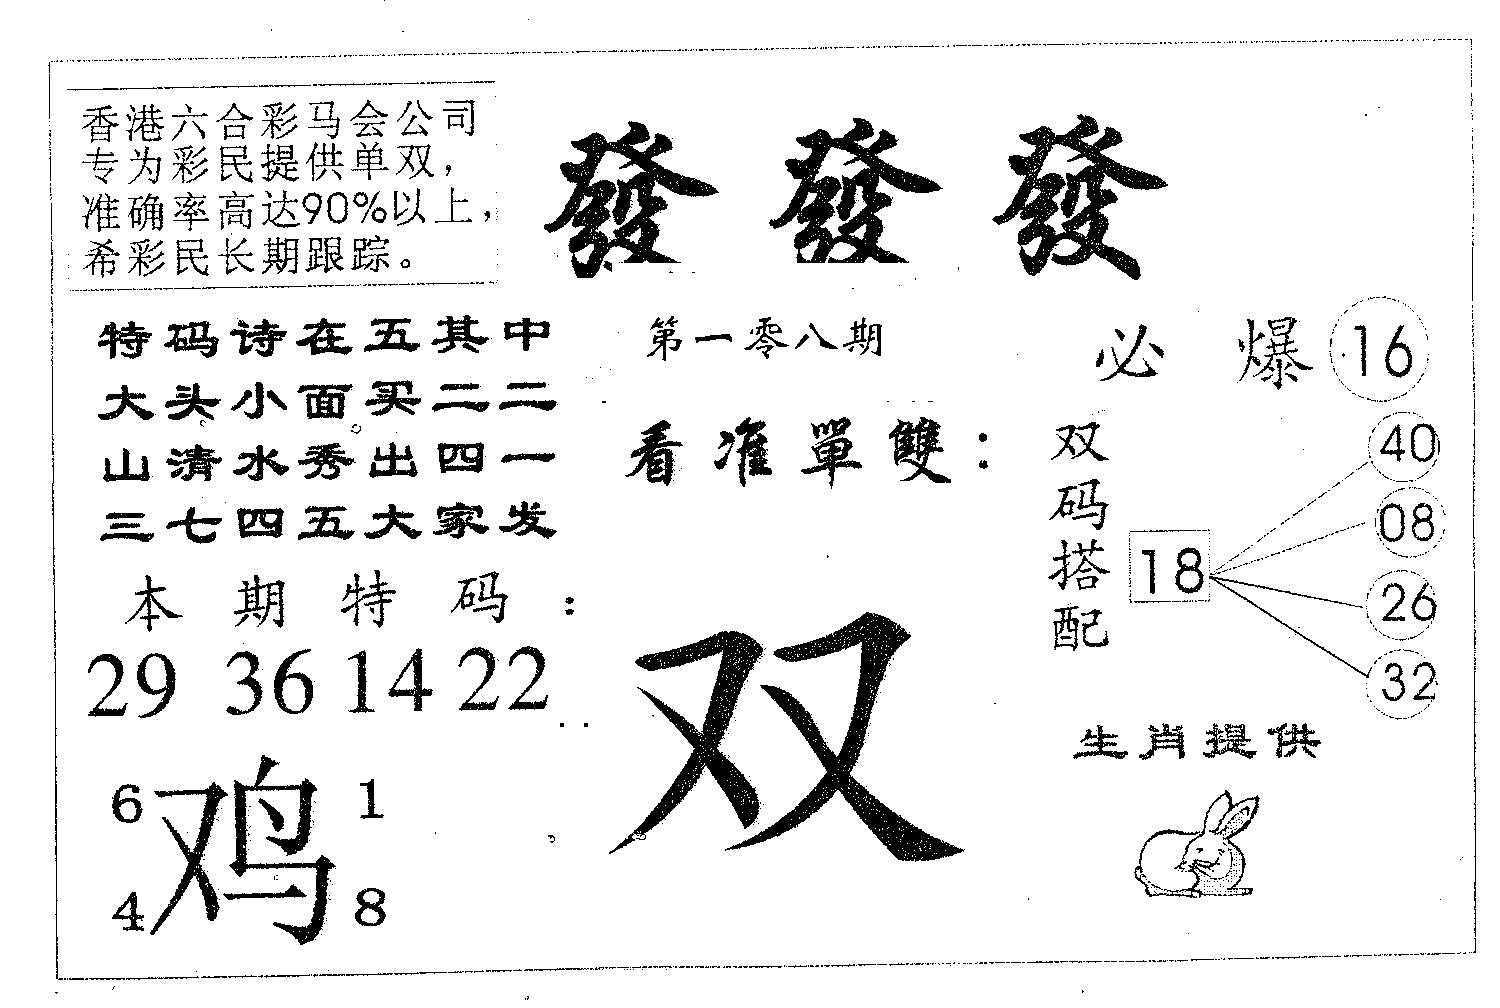 香港六合彩马会公司
专为彩民提供单双，
准确率高达90%以上，
希彩民长期跟踪。
發 發 發
特码诗在五其中
大头小面买二二
山清水秀出四一
三七四五大家发
本期特码：
29 36 14 22
6 1
鸡
4 8
第一零八期
看准單雙：
双
必爆 16
双码搭配
18
40
08
26
32
生肖提供